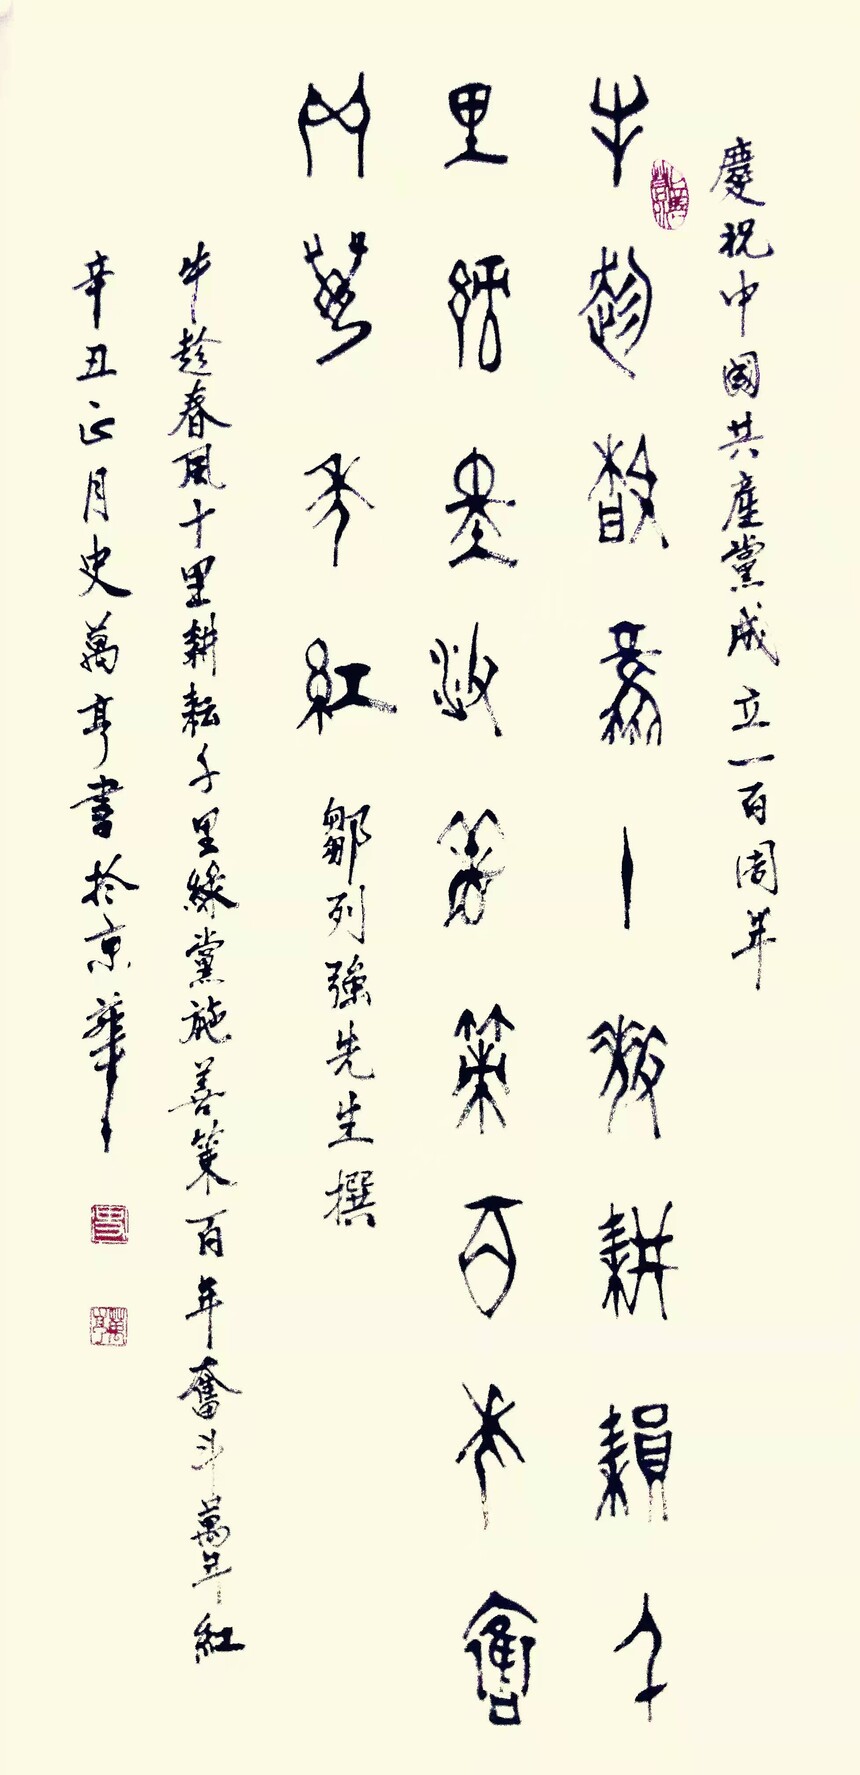 慶祝中國共產黨成立一百周年
牛趁春風十里耕耘千
里綠黨施善策百年奮
鬥萬年紅 鄒列強先生撰
牛趁春風十里耕耘千里綠黨施善策百年奮斗萬年紅
辛丑正月史萬亭書於京華